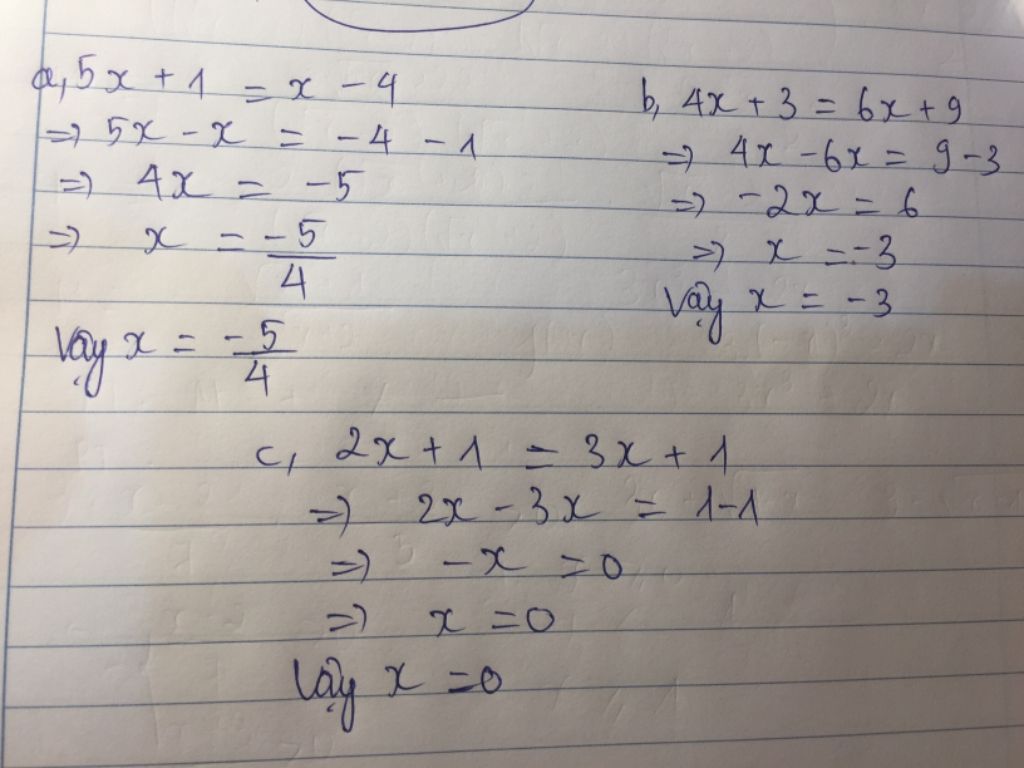 a, 5x + 1 = x - 4
=> 5x - x = -4 - 1
=> 4x = -5
=> x = -5/4
Vậy x = -5/4
b, 4x + 3 = 6x + 9
=> 4x - 6x = 9 - 3
=> -2x = 6
=> x = -3
Vậy x = -3
c, 2x + 1 = 3x + 1
=> 2x - 3x = 1 - 1
=> -x = 0
=> x = 0
Vậy x = 0